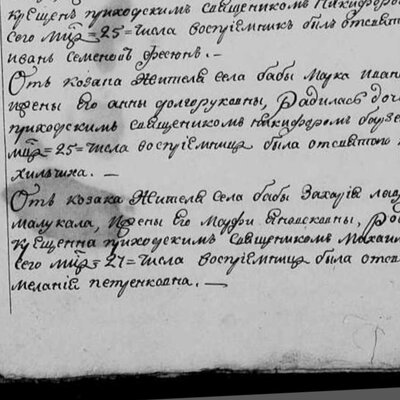 крещенъ приходскимъ священикомъ Никифоро
сего мця = 25 = числа воспріемникъ былъ отсвято
иванъ семеной фесюнъ. —
Отъ козака жителя села бабы Марка иван
жены его анны долгоруковны, Радилась доч
приходскимъ священикомъ никифоромъ борзе
мця = 25 = числа воспріемница была отсвятого
хильшиха. —
Отъ козака жителя села бабы Захарія лев
малукала, жены его Марфи яновсковны, Ро
крещенна приходскимъ священикомъ Михаил
сего мця = 27 = числа воспріемница была отсв
меланія петренковна. —